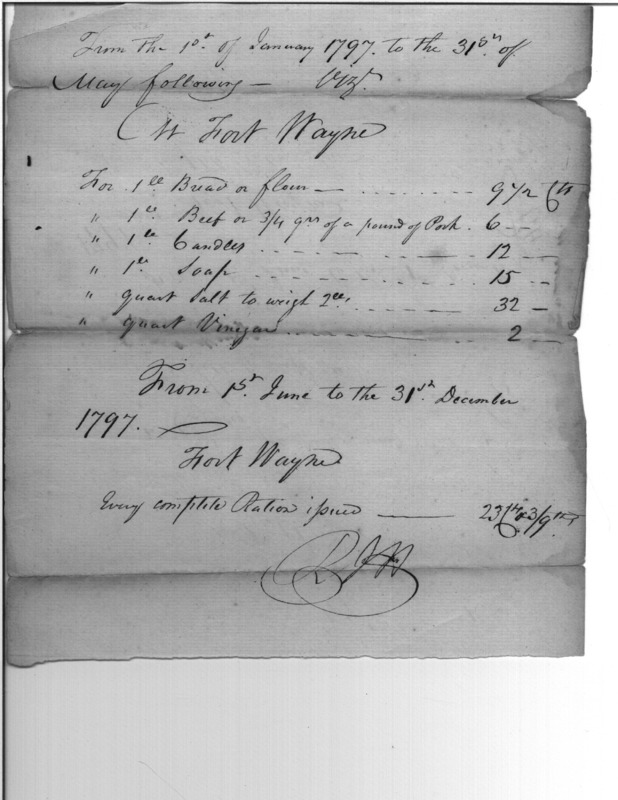 From the 1st. of January 1797. to the 31st. of
May following — Vizt.
At Fort Wayne
For 1 lb Bread or flour — 9 1/2 Cts
" 1 lb Beef or 3/4 qrs of a pound of Pork . 6 —
" 1 lb Candles 12 —
" 1 lb Soap 15 —
" quart Salt to weigh 2 lbs 32 —
" quart Vinegar 2 —
From 1st. June to the 31st. December
1797.
Fort Wayne
Every complete Ration issued — 23 Cts & 3/9ths